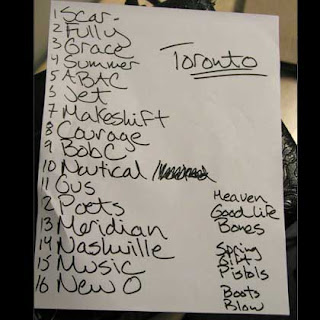 1 Scar.
2 Fully
3 Grace
4 Summer
5 ABAC
6 Jet
7 Makeshift
8 Courage
9 BobC
10 Nautical /
11 Gus
2 Poets
13 Meridian
14 Nashville
15 Music
16 New O
Toronto
Heaven
Good Life
Bones
Spring
Gift
Pistols
Boots
Blow